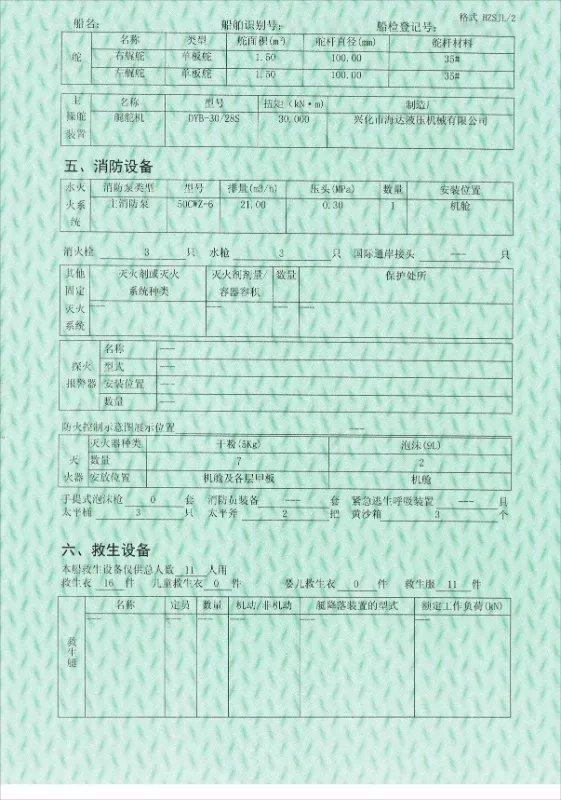 格式 HZSJ1/2
船名： 船舶识别号： 船检登记号：
舵 名称 类型 舵面积(m²) 舵杆直径(mm) 舵杆材料
右艉舵 单板舵 1.50 100.00 35#
左艉舵 单板舵 1.50 100.00 35#
主操舵装置 名称 型号 扭矩(kN·m) 制造厂
舵机 DYB-30/28S 30.000 兴化市海达液压机械有限公司
五、消防设备
水灭火系统 消防泵类型 型号 排量(m3/h) 压头(MPa) 数量 安装位置
主消防泵 50CWZ-6 21.00 0.30 1 机舱
消火栓 3 只 水枪 3 只 国际通岸接头 --- 只
其他固定灭火系统 灭火剂或灭火系统种类 灭火剂剂量/容器容积 数量 保护处所
--- --- --- ---
探火报警器 名称 ---
型式 ---
安装位置 ---
数量 ---
防火控制示意图展示位置 ---
灭火器 灭火器种类 干粉(5Kg) 泡沫(9L)
数量 7 2
安放位置 机舱及各层甲板 机舱
手提式泡沫枪 0 套 消防员装备 --- 套 紧急逃生呼吸装置 --- 具
太平桶 3 只 太平斧 2 把 黄沙箱 3 个
六、救生设备
本船救生设备仅供总人数 11 人用
救生衣 16 件 儿童救生衣 0 件 婴儿救生衣 0 件 救生服 11 件
救生艇 名称 定员 数量 机动/非机动 艇降落装置的型式 额定工作负荷(kN)
--- --- --- --- --- ---